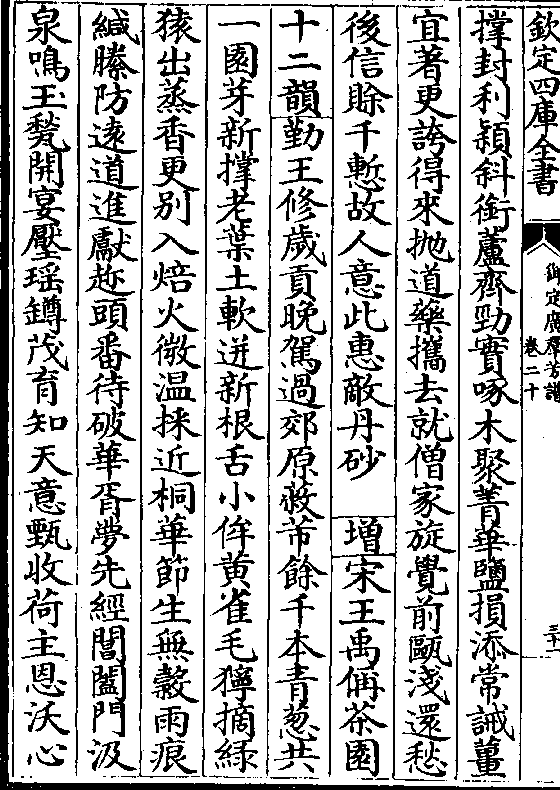 欽定四庫全書
御定廣羣芳譜
卷二十
三十二
撑封利頴斜銜蘆齊勁實啄木聚菁華鹽損添常誡薑
宜著更誇得來抛道藥攜去就僧家旋覺前甌淺還愁
後信賒千慙故人意此惠敵丹砂 增宋王禹偁茶園
十二韻勤王修歲貢晚駕過郊原蔽芾餘千本青葱共
一園芽新撑老葉土軟迸新根舌小侔黄雀毛獰摘綠
猿出蒸香更别入焙火微温採近桐華節生無糓雨痕
緘縢防逺道進獻趂頭番待破華胥夢先經閶闔門汲
泉鳴玉甃開宴壓瑶罇茂育知天意甄收荷主恩沃心